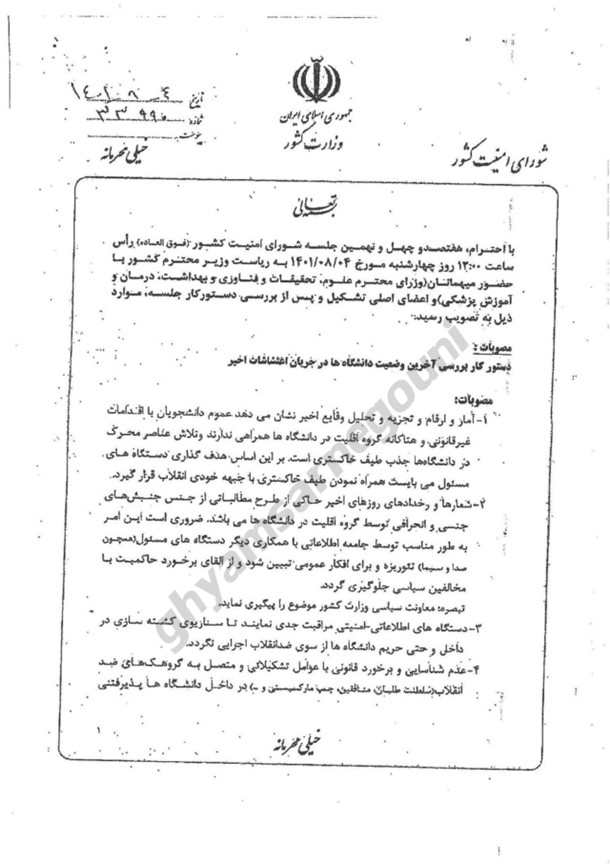 جمهوری اسلامی ایران
وزارت کشور
تاریخ ۱۴۰۱/۸/۴
شماره ۳۳۹۹۰
پیوست
خیلی محرمانه
شورای امنیت کشور
بسمه تعالی
با احترام، هفتصدو چهل و نهمین جلسه شورای امنیت کشور (فوق العاده) رأس
ساعت ۱۳:۰۰ روز چهارشنبه مورخ ۱۴۰۱/۰۸/۰۴ به ریاست وزیر محترم کشور با
حضور میهمانان(وزرای محترم علوم، تحقیقات و فناوری و بهداشت، درمان و
آموزش پزشکی)و اعضای اصلی تشکیل و پس از بررسی دستورکار جلسه، موارد
ذیل به تصویب رسید:
مصوبات :
دستور کار بررسی آخرین وضعیت دانشگاه ها در جریان اغتشاشات اخیر
مصوبات:
۱-آمار و ارقام و تجزیه و تحلیل وقایع اخیر نشان می دهد عموم دانشجویان با اقدامات
غیرقانونی و هتاکانه گروه اقلیت در دانشگاه ها همراهی ندارند وتلاش عناصر محرک
در دانشگاه‌ها جذب طیف خاکستری است. بر این اساس هدف گذاری دستگاه های
مسئول می بایست همراه نمودن طیف خاکستری با جبهه خودی انقلاب قرار گیرد.
۲-شعارها و رخدادهای روزهای اخیر حاکی از طرح مطالباتی از جنس جنبش‌های
جنسی و انحرافی توسط گروه اقلیت در دانشگاه ها می باشد. ضروری است این امر
به طور مناسب توسط جامعه اطلاعاتی با همکاری دیگر دستگاه های مسئول(همچون
صدا و سیما) تئوریزه و برای افکار عمومی تبیین شود و از القای برخورد حاکمیت با
مخالفین سیاسی جلوگیری گردد.
تبصره: معاونت سیاسی وزارت کشور موضوع را پیگیری نماید.
۳-دستگاه های اطلاعاتی-امنیتی مراقبت جدی نمایند تا سناریوی کشته سازی در
داخلی و حتی حریم دانشگاه ها از سوی ضدانقلاب اجرایی نگردد.
۴-عدم شناسایی و برخورد قانونی با عوامل تشکیلاتی و متصل به گروهک‌های ضد
انقلاب(سلطنت طلبان، منافقین، چپ مارکسیستی و ..) در داخل دانشگاه ها پذیرفتنی
۱
خیلی محرمانه
ghyamsarnegouni